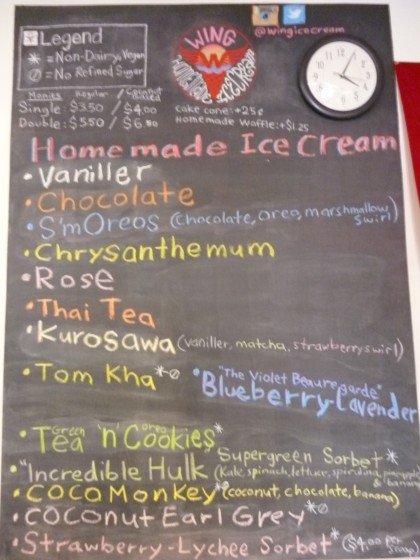 Legend
* = Non-Dairy, Vegan
∅ = No Refined Sugar
WING
HOMEMADE ICE CREAM
@wingicecream
Monies Regular / Coconut Based
Single: $3.50 / $4.00
Double: $5.50 / $6.50
cake cone: +25¢
Homemade Waffle: +$1.25
Homemade Ice Cream
• Vaniller
• Chocolate
• S'mOreos (chocolate, oreo, marshmallow swirl)
• Chrysanthemum
• Rose
• Thai Tea
• Kurosawa (vaniller, matcha, strawberry swirl)
• Tom Kha *∅
• "The Violet Beauregarde"
Blueberry-Lavender
• Green Tea 'n' Oreo Cookies *
• "Incredible Hulk" Supergreen Sorbet *
(Kale, spinach, lettuce, spirulina, pineapple & banana)
• Coco Monkey * (coconut, chocolate, banana)
• Coconut Earl Grey *∅
• Strawberry-Lychee Sorbet * ($4.00 per scoop)